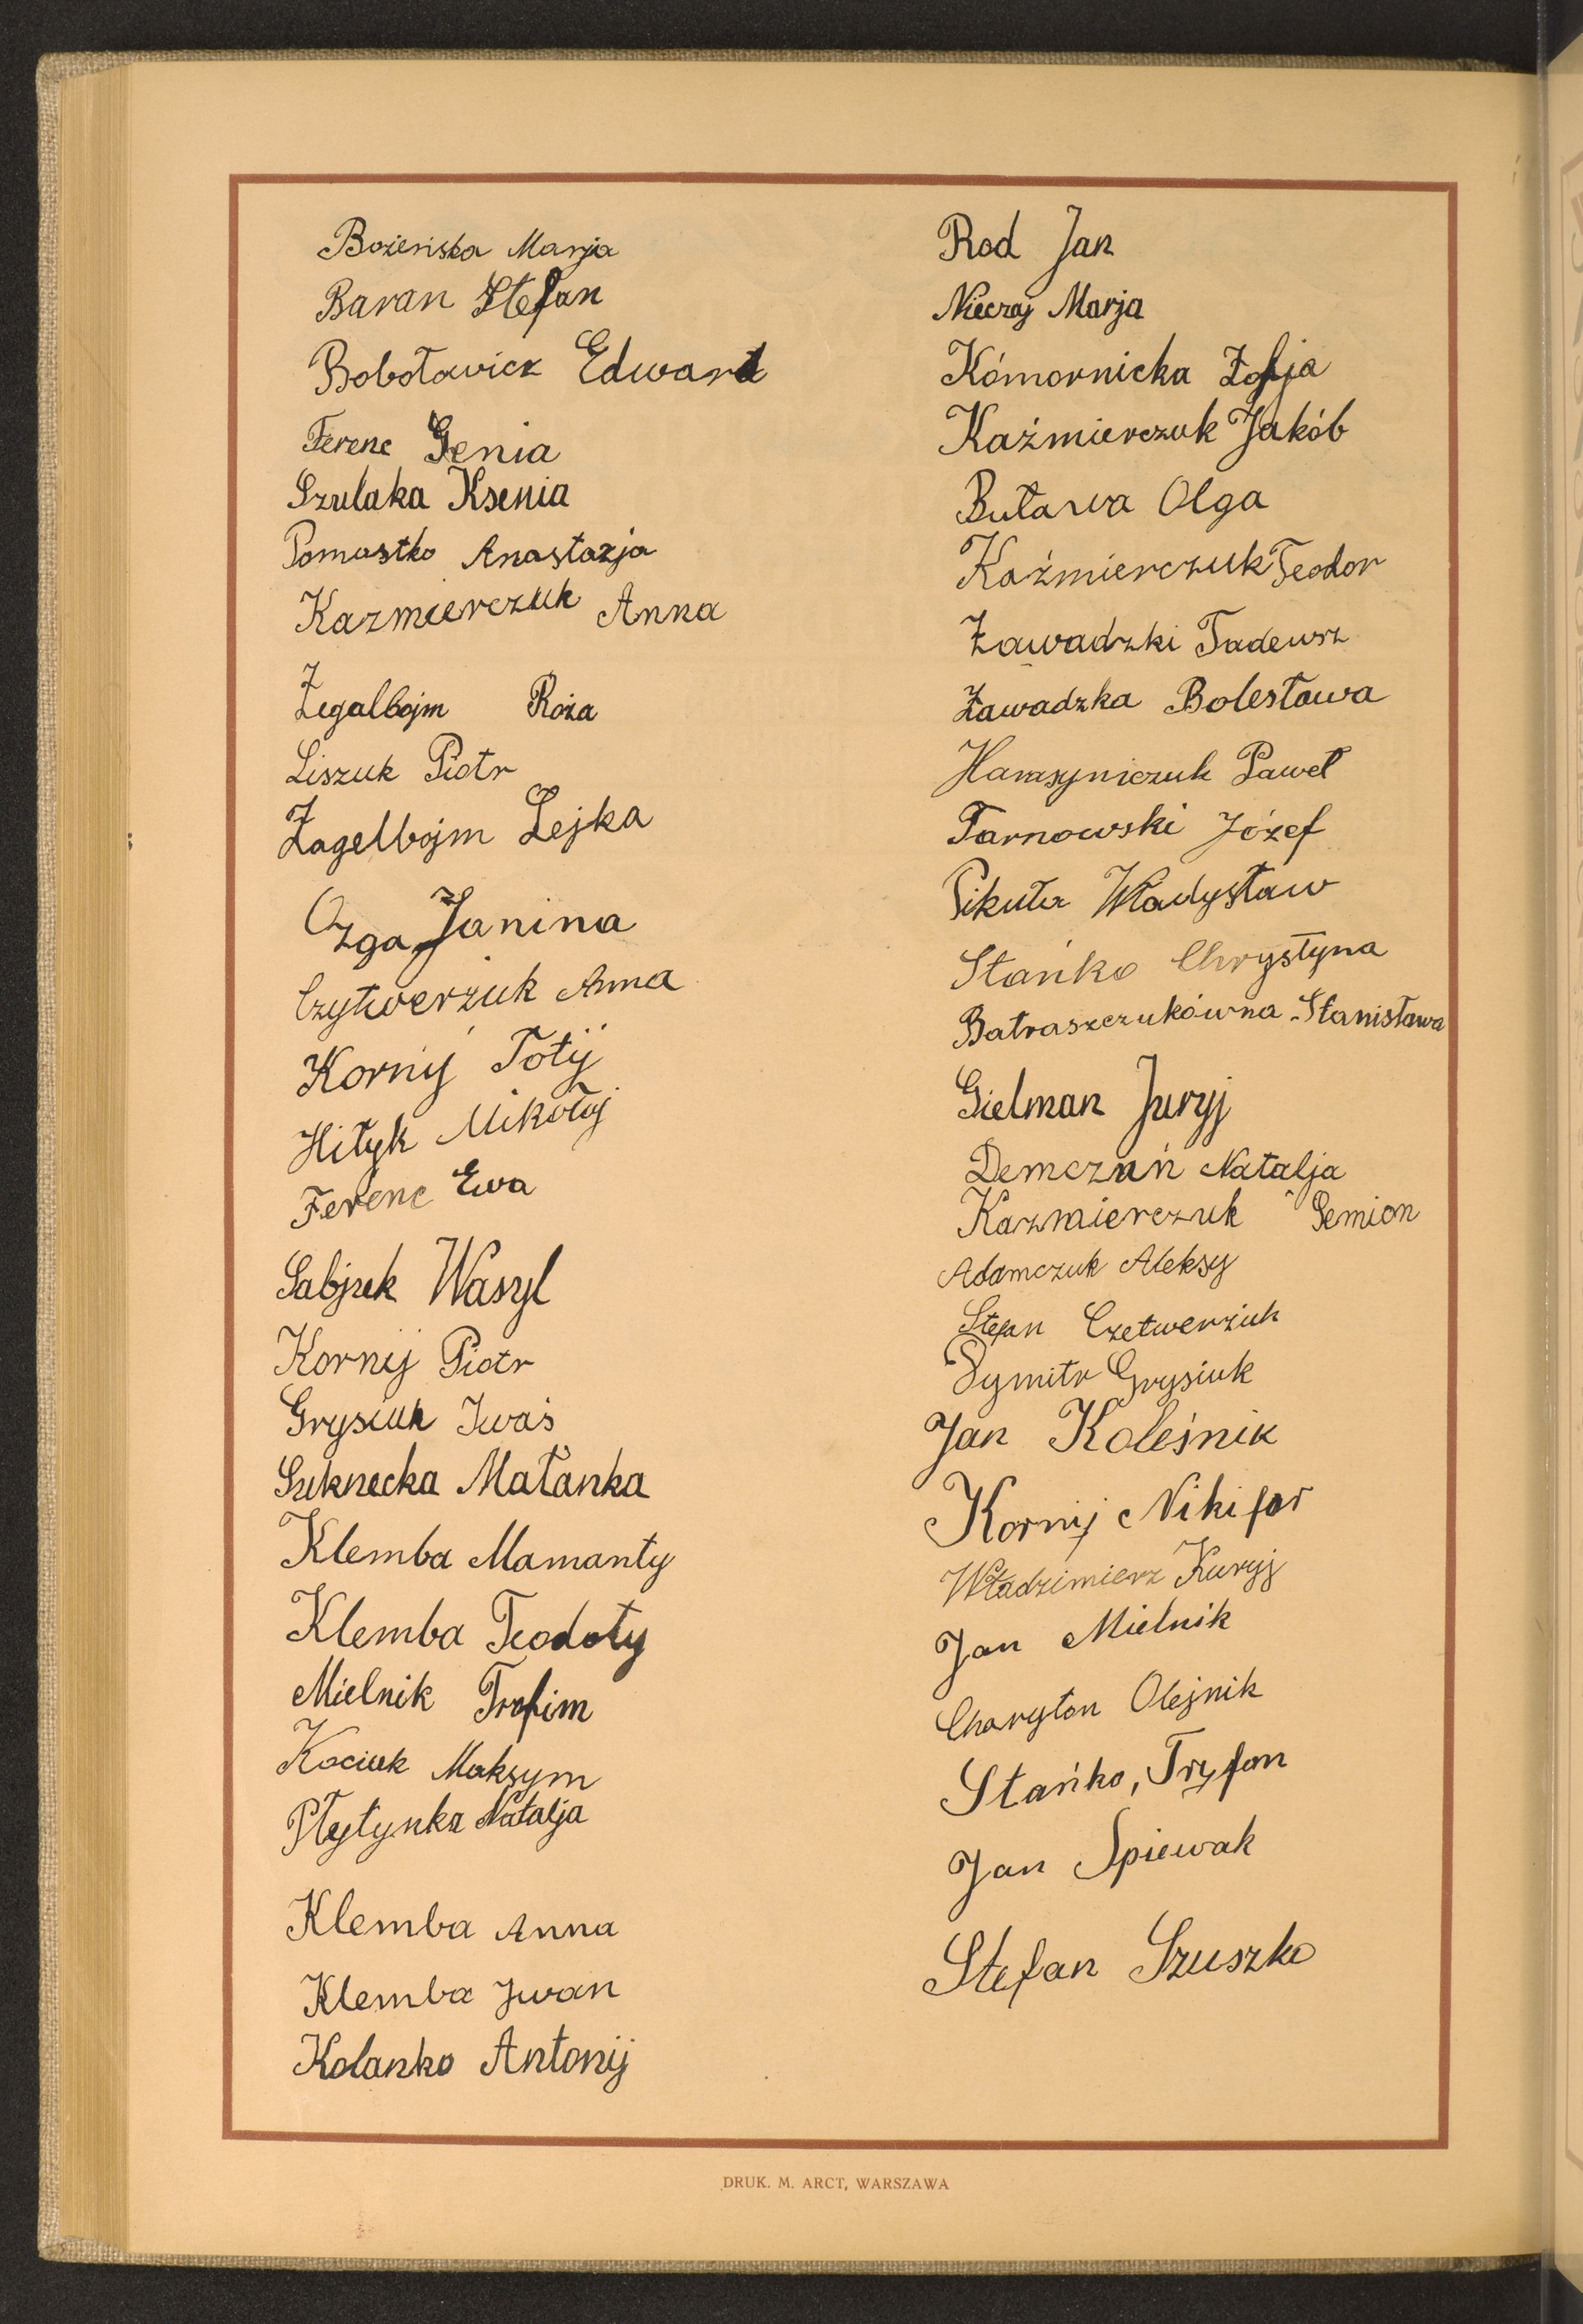 Bożeńska Marja
Baran Stefan
Bobołowicz Edward
Ferenc Genia
Szulaka Ksenia
Pomastko Anastazja
Kazmierczuk Anna
Zegalbojm Roża
Liszuk Piotr
Zagelbojm Lejka
Ozga Janina
Czytwerżuk Anna
Kornij Totij
Hityk Mikołoj
Ferenc Ewa
Wasyl
Kornij Piotr
Grysiuk Iwaś
Matanka
Klemba Mamanty
Klemba Teodoty
Mielnik Trofim
Kociuk Maksym
Płytynka Natalja
Klemba Anna
Klemba Jwan
Kolanko Antonij
Rod Jan
Nieczaj Marja
Kómornicka Zofja
Kaźmierczuk Jakób
Butawa Olga
Kaźmierczuk Teodor
Zawadzki Tadeusz
Zawadzka Bolesława
Harasymiczuk Paweł
Tarnowski Józef
Pikuła Władysław
Stańko Chrystyna
Batraszczukówna Stanisława
Gielman Juryj
Demczań Natalja
Kazmierczuk Semion
Adamczuk Aleksy
Stefan Czetwerżuk
Dymitr Grysiuk
Jan Koleśnik
Kornij Nikifor
Władzimierz Kuryj
Jan Mielnik
Charyton Olejnik
Stańko, Tryfon
Jan Spiewak
Stefan Szuszko
DRUK. M. ARCT, WARSZAWA